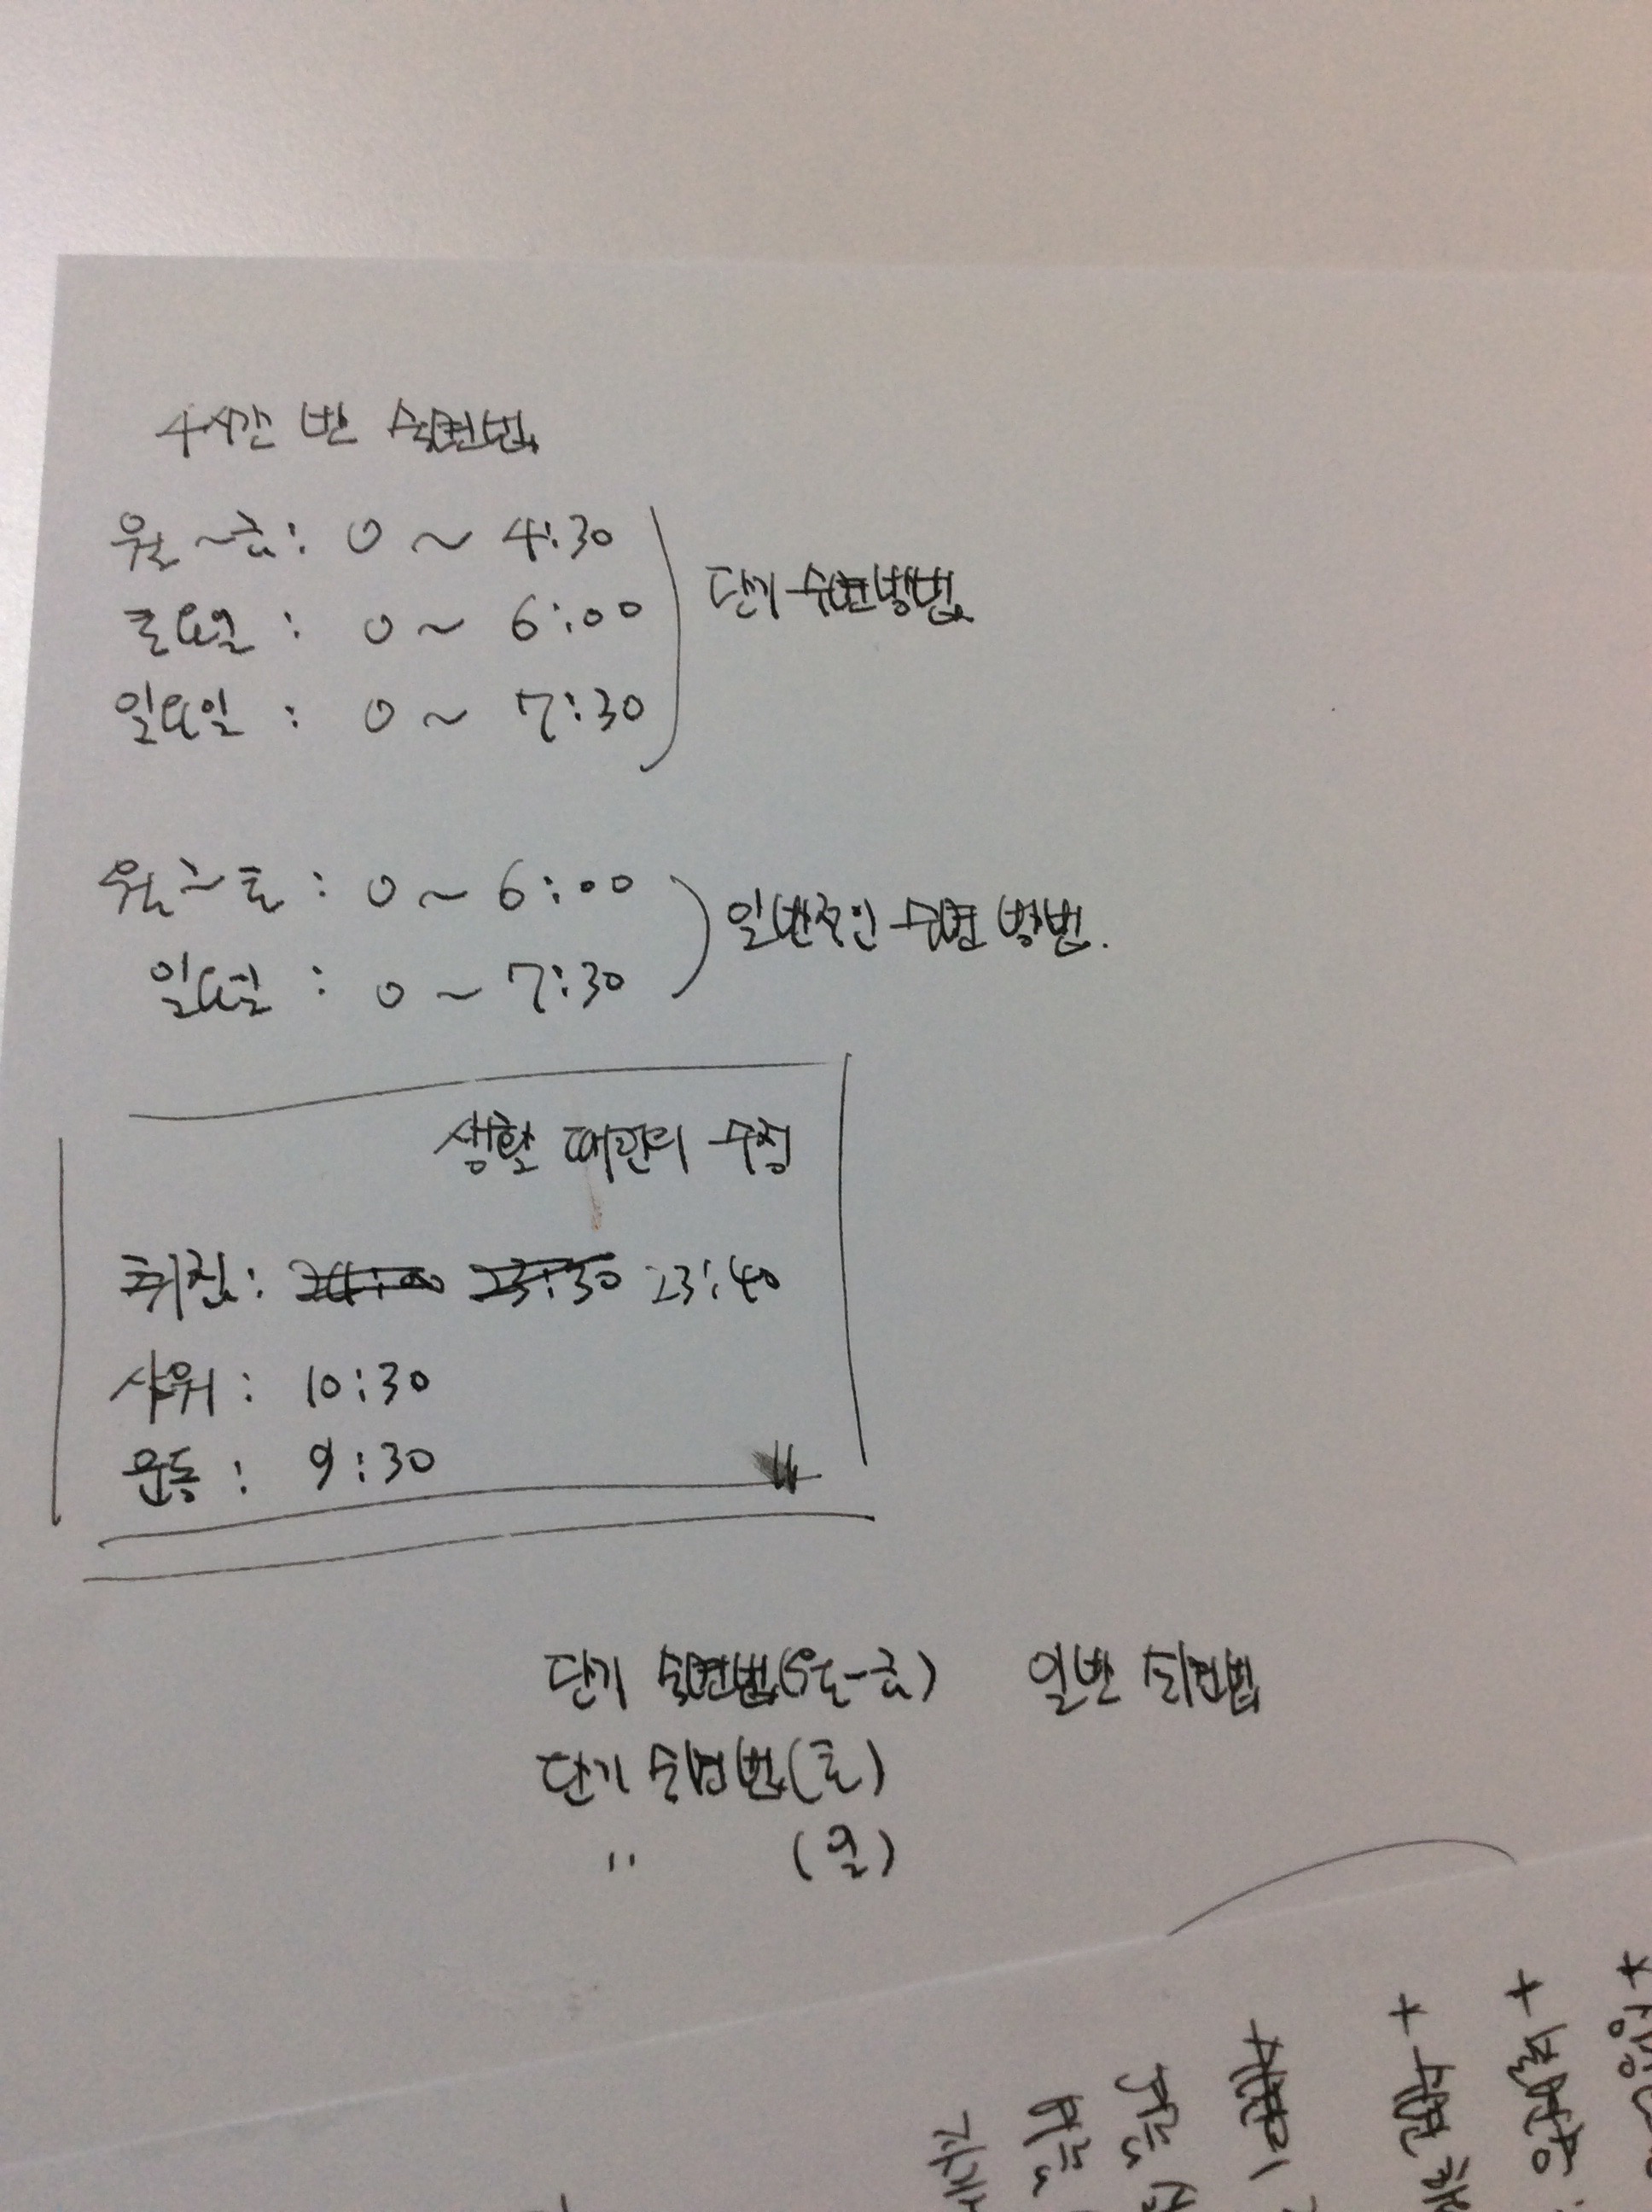 4시간 반 수면법
월~금: 0 ~ 4:30
토요일 : 0 ~ 6:00
일요일 : 0 ~ 7:30
단기 수면방법
월~토 : 0 ~ 6:00
일요일 : 0 ~ 7:30
일반적인 수면 방법.
생활 패턴의 수정
취침: 24:00 23:30 23:40
샤워 : 10:30
운동 : 9:30
단기 수면법(월-금) 일반 수면법
단기 수면법(토)
" (일)